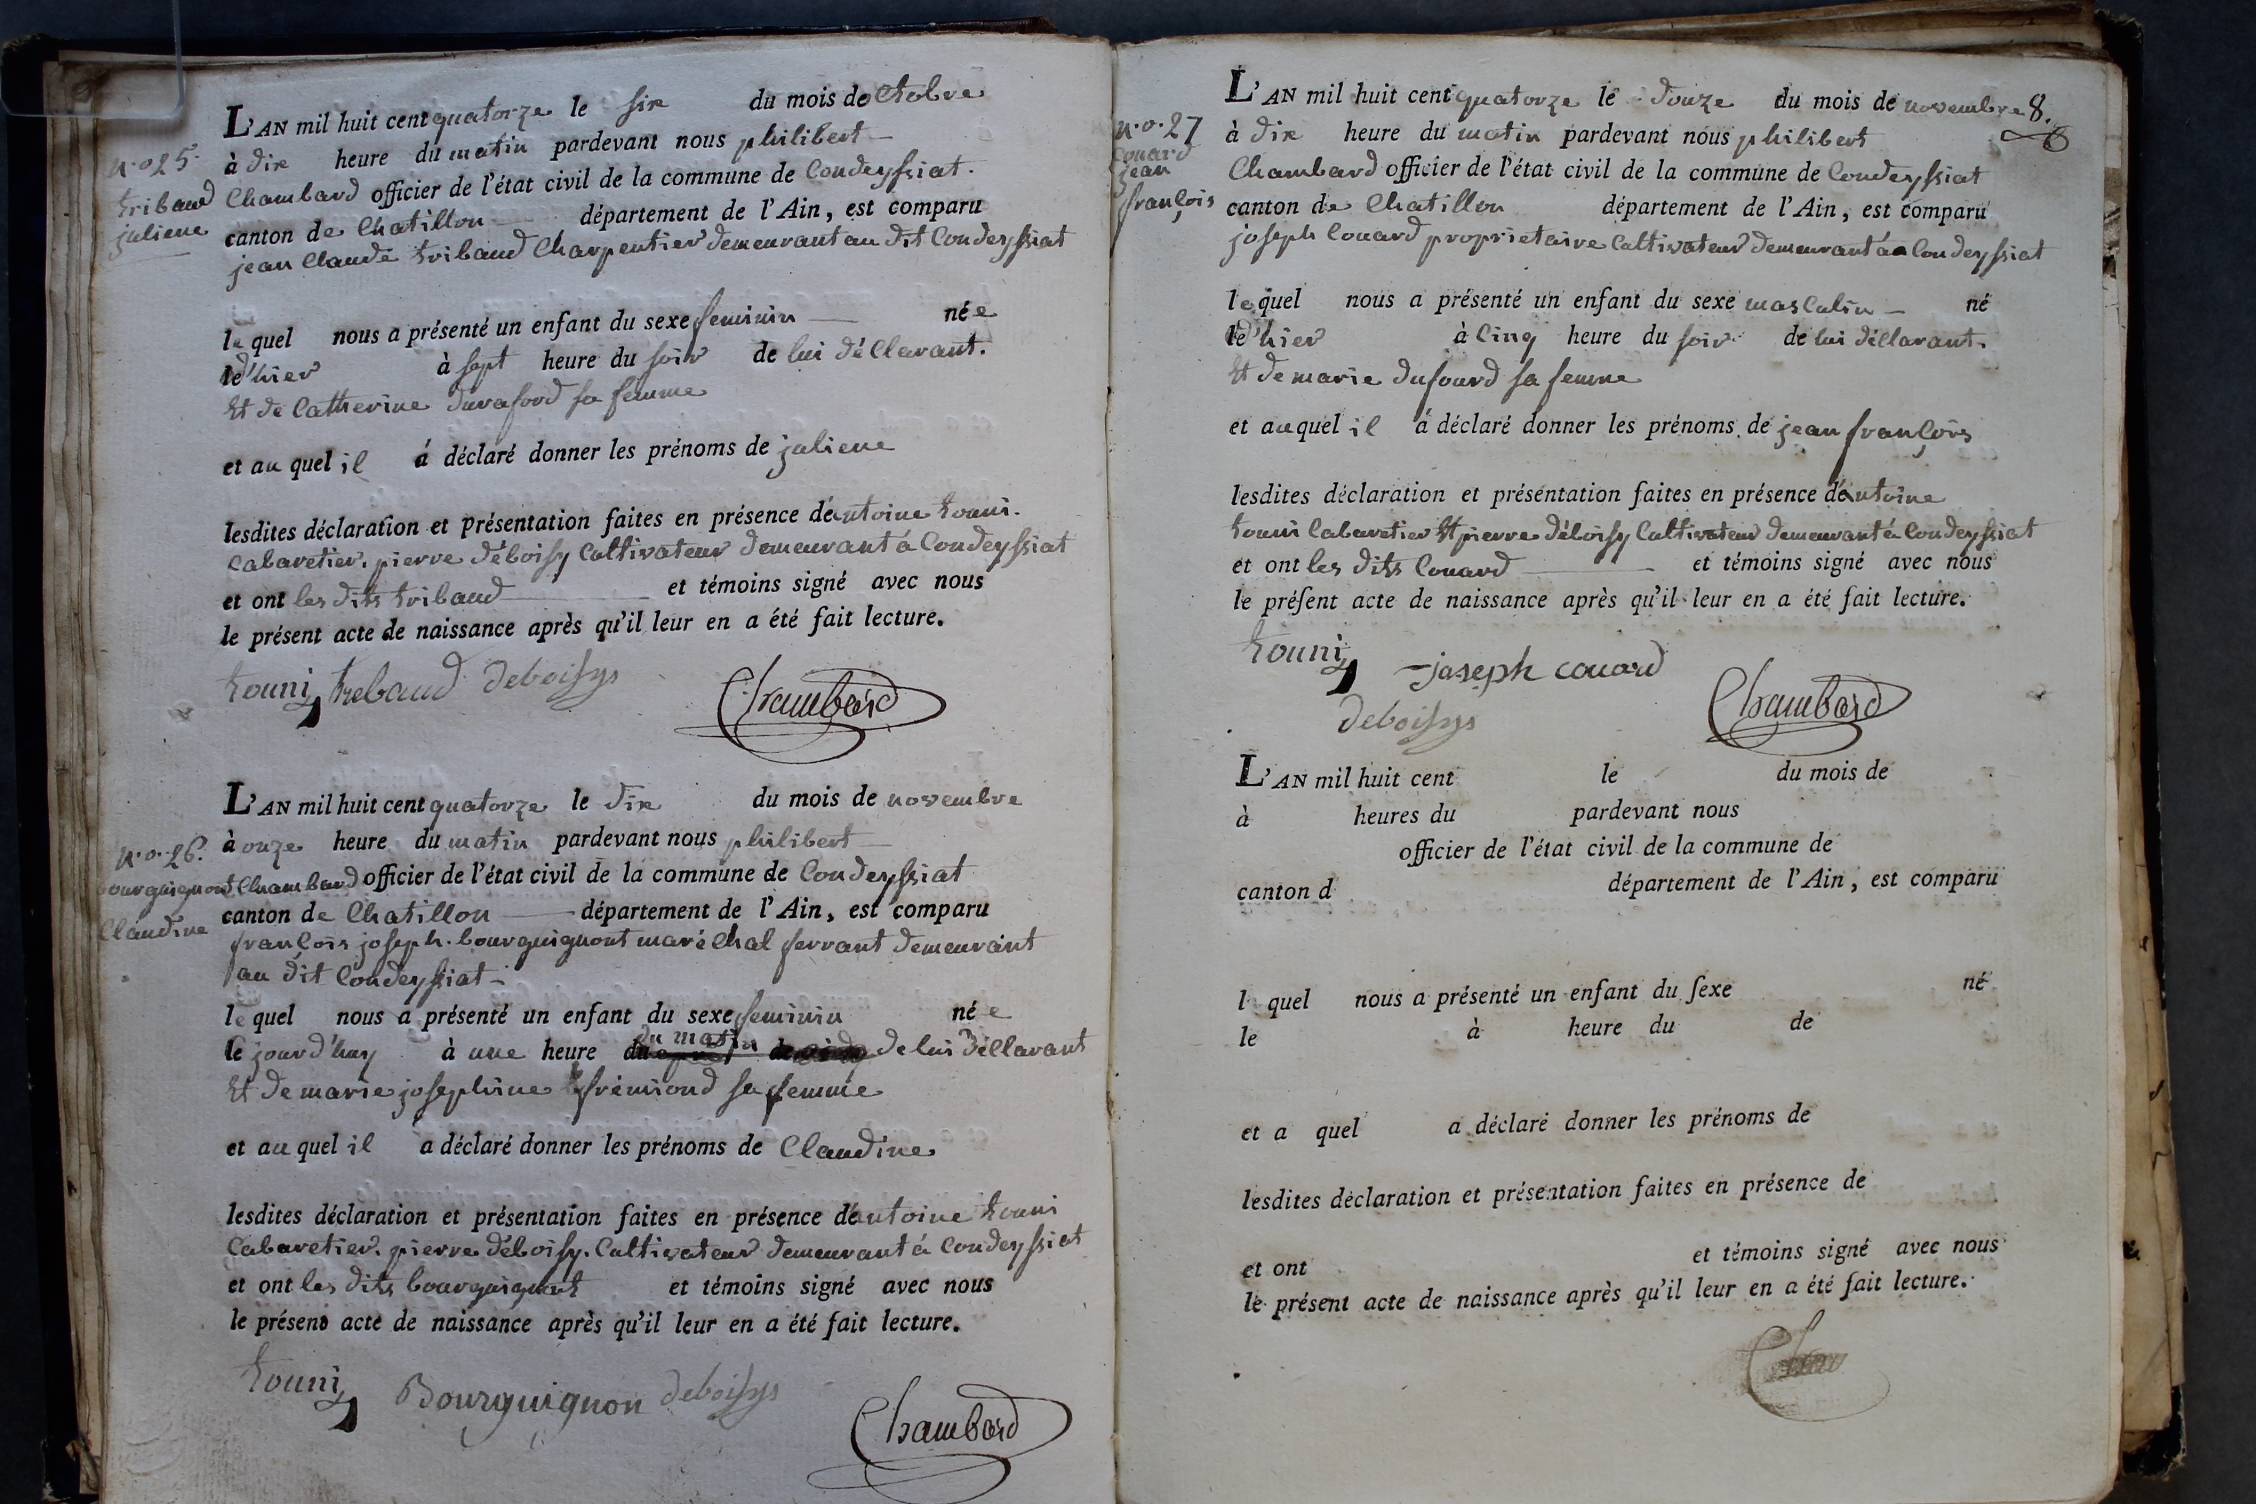 L'AN mil huit cent quatorze le six du mois doctobre
n.o 25.
à dix heure du matin pardevant nous philibert
tribaud
Chambard officier de l'état civil de la commune de Condeyssiat.
juliene
canton de Chatillon département de l'Ain, est comparu
jean Claude tribaud Charpentier demeurant au dit Condeyssiat
lequel nous a présenté un enfant du sexe feminin née
le d'hier à sept heure du soir de lui déClarant.
Et de Catherine duraford sa femme
et au quel il á déclaré donner les prénoms de juliene
lesdites déclaration et présentation faites en présence d'antoine touni.
Cabaretier. pierre déboisy Cultivateur demeurant á Condeyssiat
et ont les dits tribaud et témoins signé avec nous
le présent acte de naissance après qu'il leur en a été fait lecture.
touni trebaud deboisys
Chambard
L'AN mil huit cent quatorze le dix du mois de novembre
n.o.26.
à onze heure du matin pardevant nous philibert
bourguignont
Chambard officier de l'état civil de la commune de Condeyssiat
Claudine
canton de Chatillon département de l'Ain, est comparu
françois joseph. bourguignont maréchal ferrant demeurant
au dit Condeyssiat
lequel nous a présenté un enfant du sexe feminin née
du matin
le jourd'huy à une heure du de lui déClarant
Et de marie josephine frémiond sa femme
et au quel il a déclaré donner les prénoms de Claudine
lesdites déclaration et présentation faites en présence d'antoine touni
Cabaretier. pierre déboisy. Cultivateur demeurant á Condeyssiat
et ont les dits bourguignont et témoins signé avec nous
le présent acte de naissance après qu'il leur en a été fait lecture.
touni Bourguignon deboisys
Chambard
L'AN mil huit cent quatorze le douze du mois de novembre 8.
n.o.27
à dix heure du matin pardevant nous philibert
Couard
jean
françois
Chambard officier de l'état civil de la commune de Condeyssiat
canton de Chatillon département de l'Ain, est comparu
joseph Couard proprietaire Cultivateur demeurant á Condeyssiat
lequel nous a présenté un enfant du sexe masculin né
le d'hier à Cinq heure du soir de lui déClarant.
Et de marie dufourd sa femme
et auquel il á déclaré donner les prénoms de jean françois
lesdites déclaration et présentation faites en présence d'antoine
touni Cabaretier Et pierre déboisy Cultivateur demeurant á Condeyssiat
et ont les dits Couard et témoins signé avec nous
le présent acte de naissance après qu'il leur en a été fait lecture.
touni joseph couard
deboisys Chambard
L'AN mil huit cent le du mois de
à heures du pardevant nous
officier de l'état civil de la commune de
canton d département de l'Ain, est comparu
l quel nous a présenté un enfant du sexe né
le à heure du de
et a quel a déclaré donner les prénoms de
lesdites déclaration et présentation faites en présence de
et ont et témoins signé avec nous
le présent acte de naissance après qu'il leur en a été fait lecture.